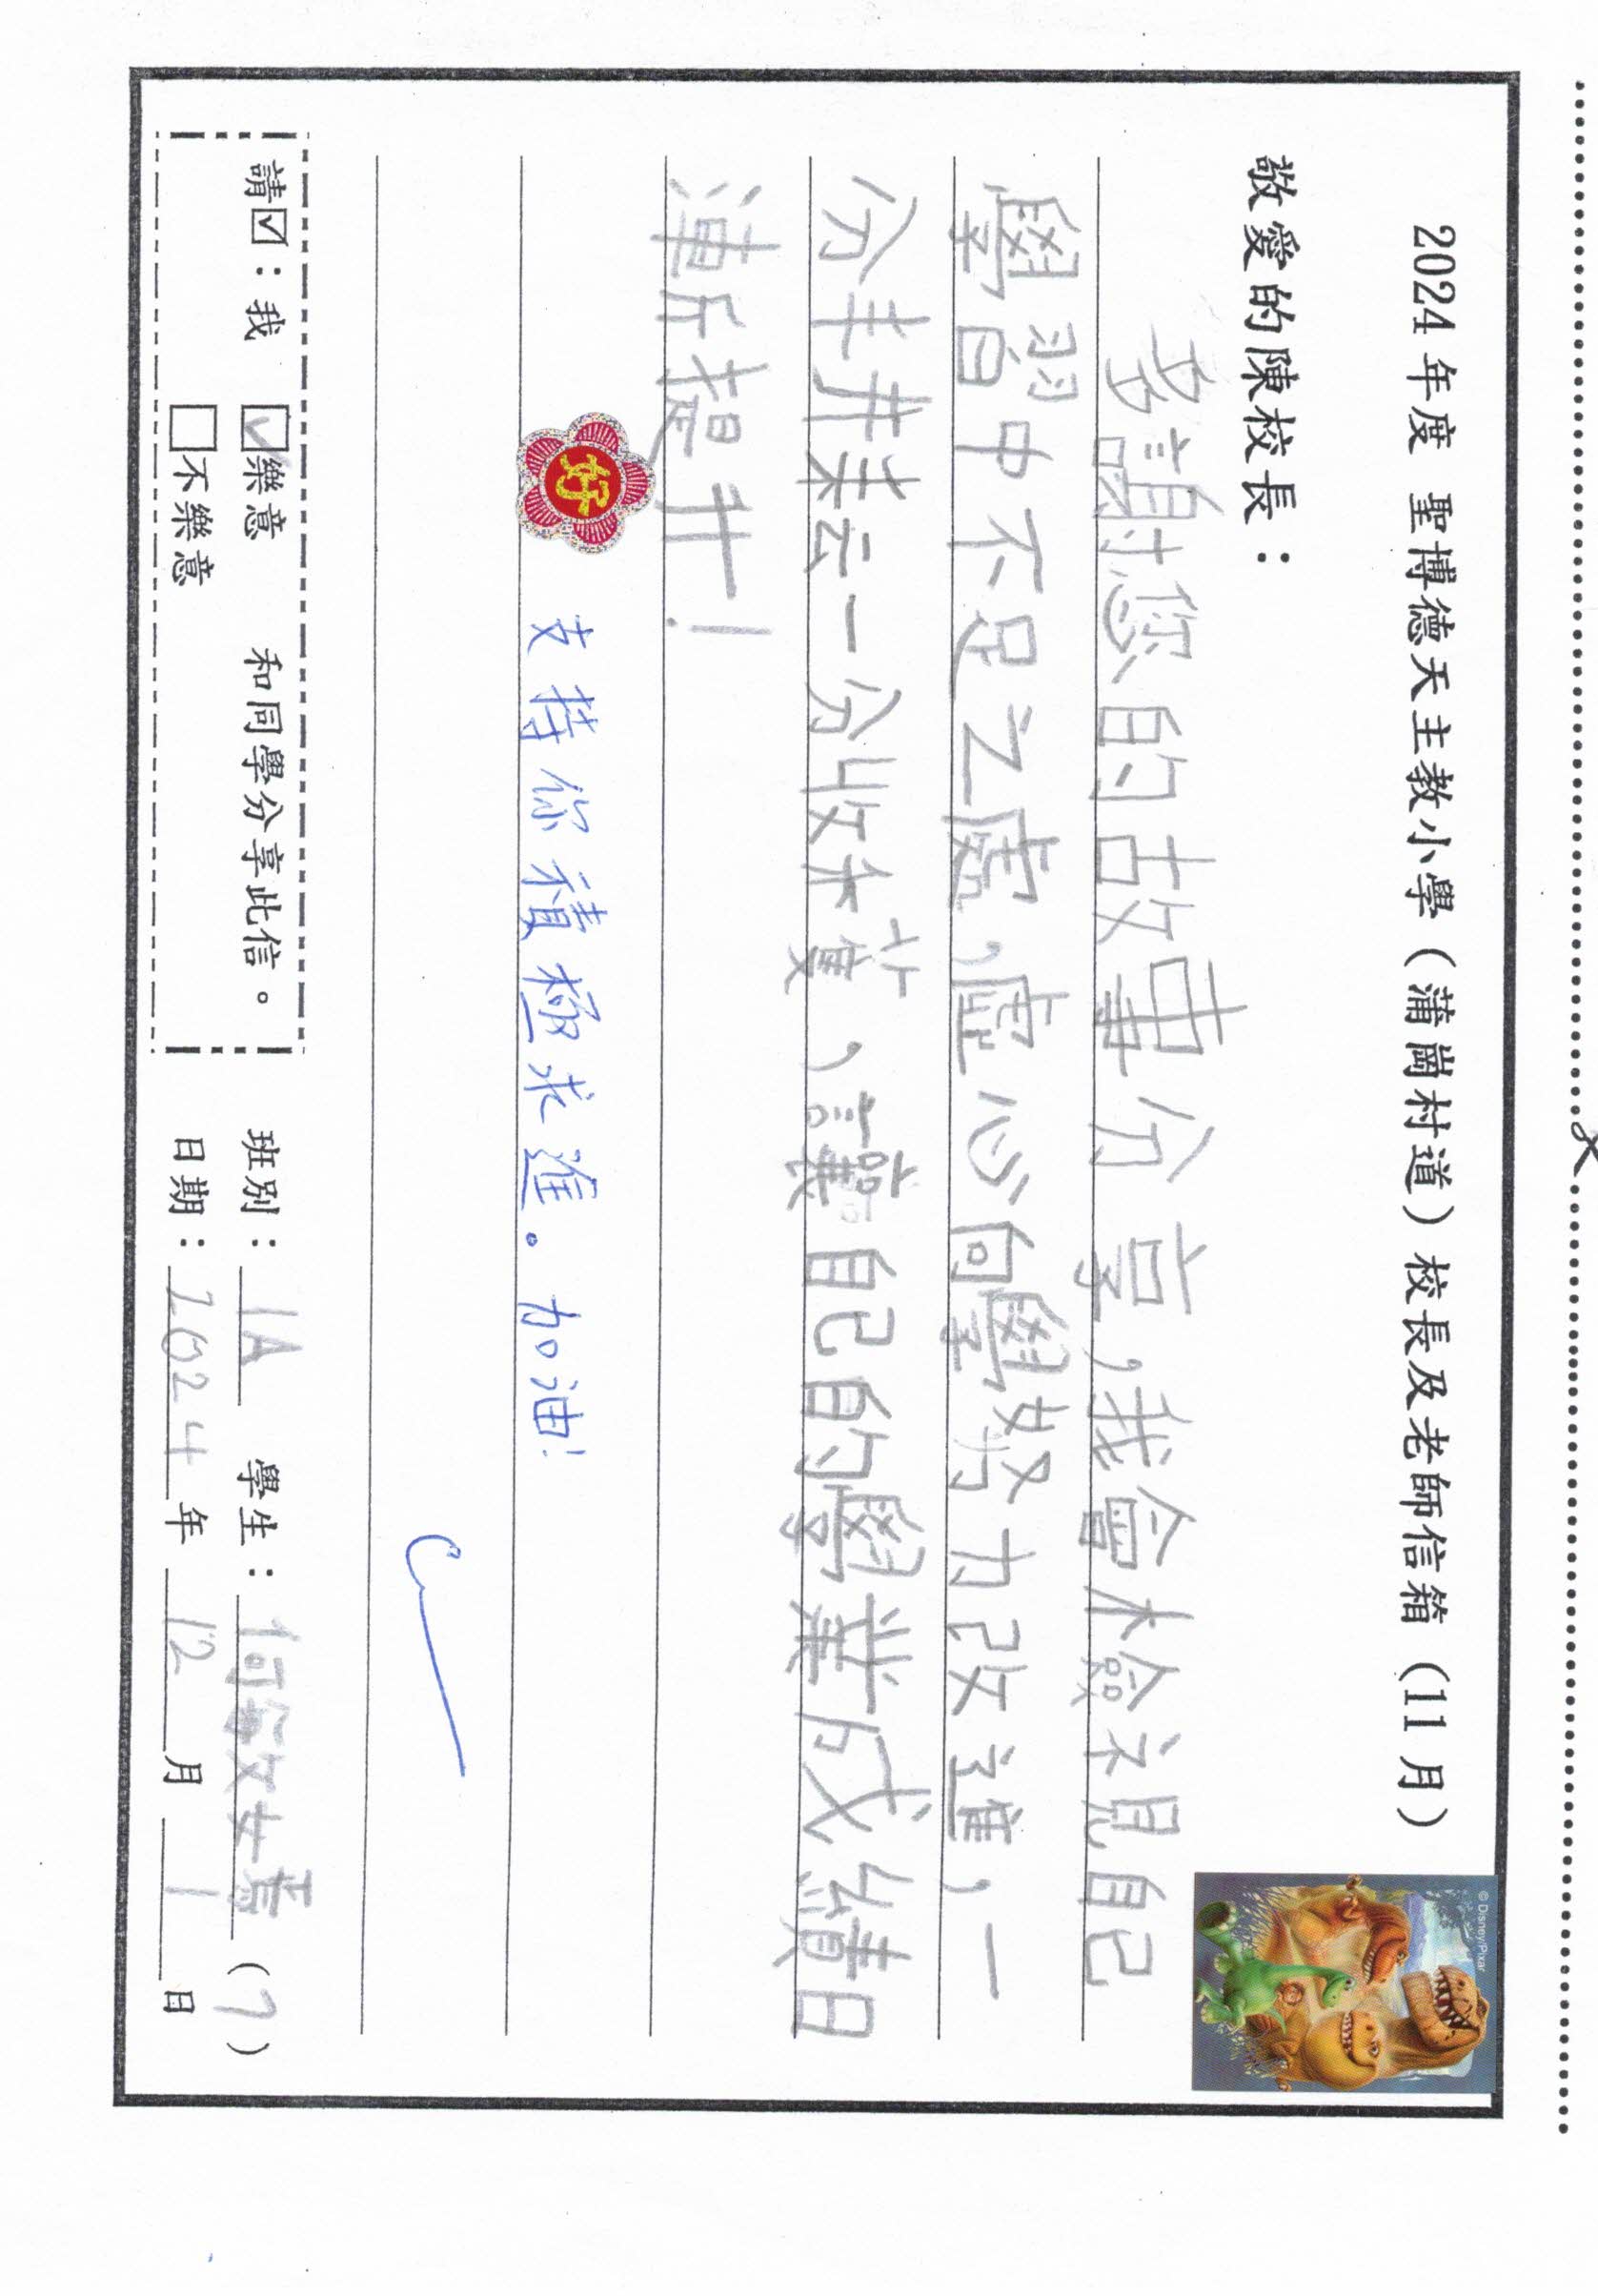 2024 年度 聖博德天主教小學（蒲崗村道）校長及老師信箱（11 月）
© Disney/Pixar
敬愛的陳校長：
多謝您的故事分享，我會檢視自己
學習中不足之處，虛心向學努力改進，一
分耕耘一分收穫，讓自己的學業成績日
漸提升！
好 支持你積極求進。加油！
請☑：我 ☑樂意 和同學分享此信。 班別：1A 學生：何 (7)
□不樂意 日期：2024年12月1日